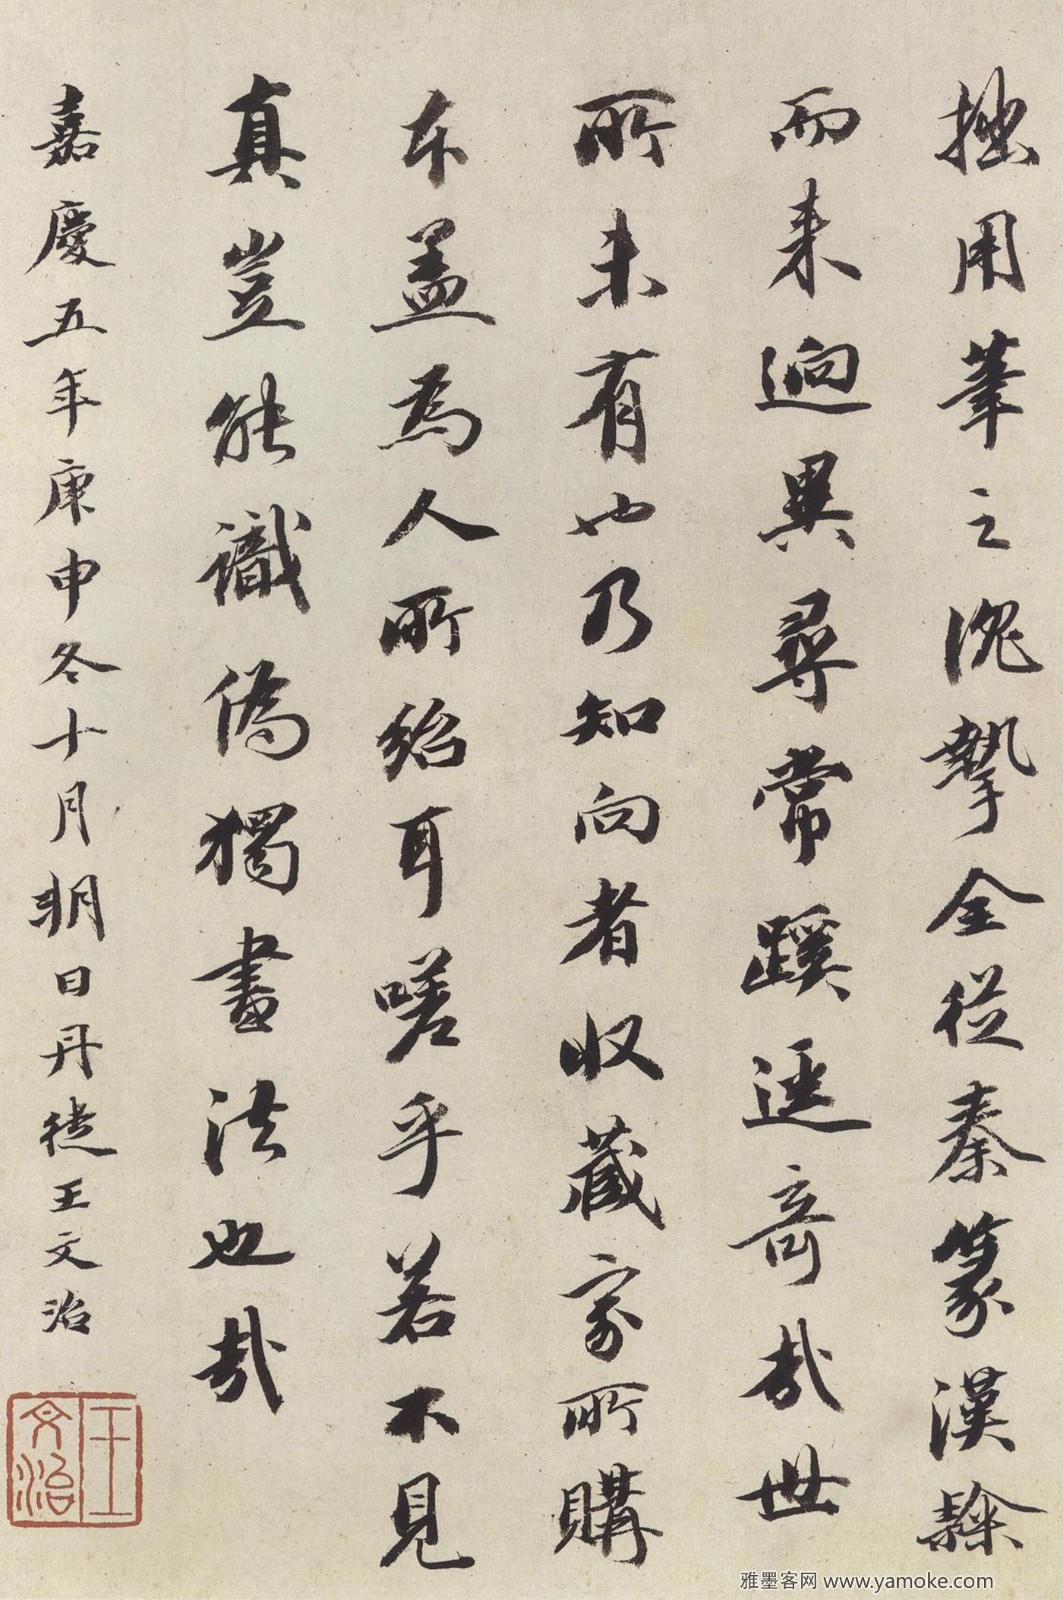 拙用筆之沈摯全從秦篆漢隸
而来迥異尋常蹊逕奇哉世
所未有也乃知向者収藏家所購
本盖為人所紿耳嗟乎若不見
真豈能識偽獨畫法也哉
嘉慶五年庚申冬十月朔日丹徒王文治
王文治
雅墨客网 www.yamoke.com